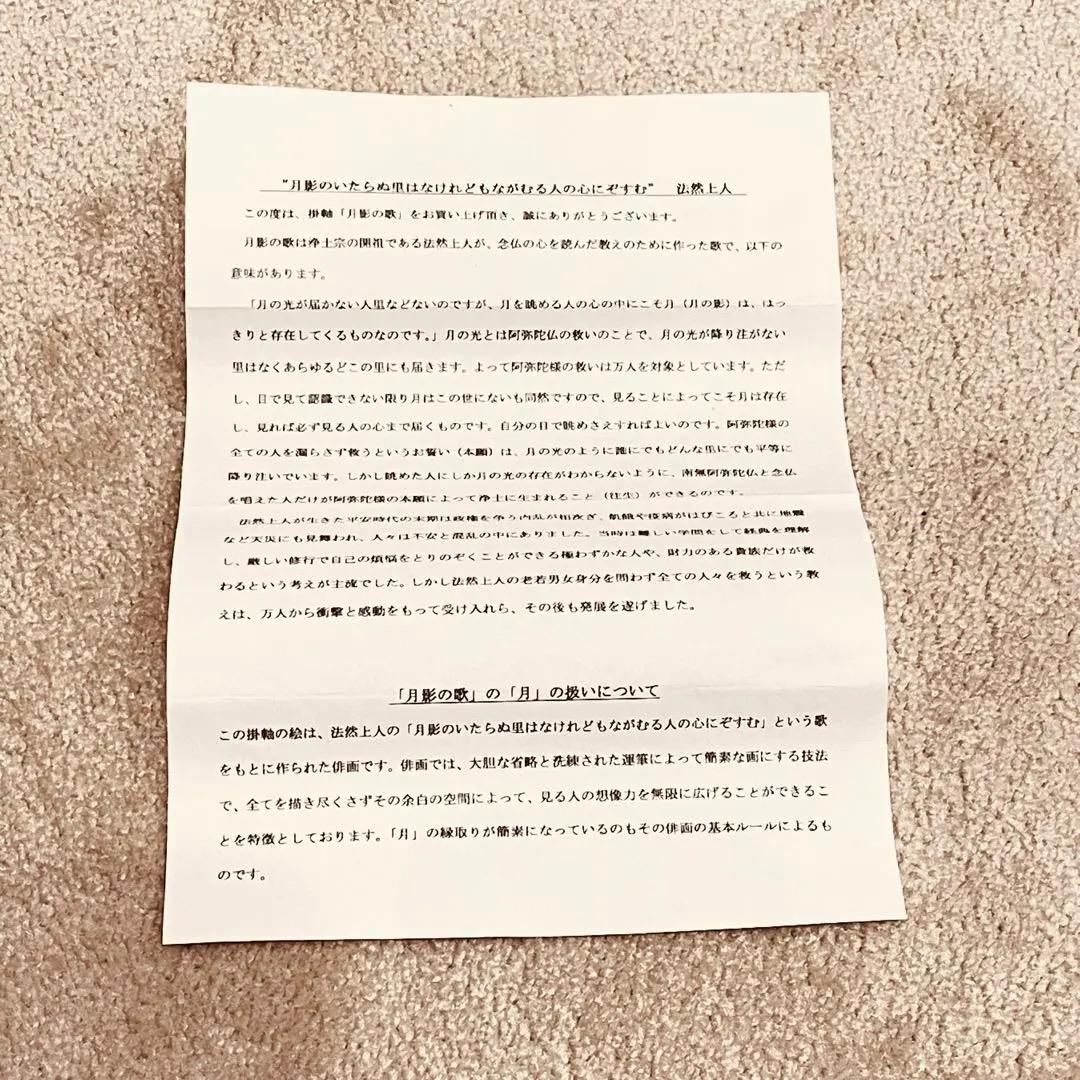 "月影のいたらぬ里はなけれどもながむる人の心にぞすむ" 法然上人
この度は、掛軸「月影の歌」をお買い上げ頂き、誠にありがとうございます。
月影の歌は浄土宗の開祖である法然上人が、念仏の心を読んだ教えのために作った歌で、以下の
意味があります。
「月の光が届かない人里などないのですが、月を眺める人の心の中にこそ月（月の影）は、はっ
きりと存在してくるものなのです。」月の光とは阿弥陀仏の救いのことで、月の光が降り注がない
里はなくあらゆるどこの里にも届きます。よって阿弥陀様の救いは万人を対象としています。ただ
し、目で見て認識できない限り月はこの世にないも同然ですので、見ることによってこそ月は存在
し、見れば必ず見る人の心まで届くものです。自分の目で眺めさえすればよいのです。阿弥陀様の
全ての人を漏らさず救うというお誓い（本願）は、月の光のように誰にでもどんな里にでも平等に
降り注いでいます。しかし眺めた人にしか月の光の存在がわからないように、南無阿弥陀仏と念仏
を唱えた人だけが阿弥陀様の本願によって浄土に生まれること（往生）ができるのです。
法然上人が生きた平安時代の末期は政権を争う内乱が相次ぎ、飢餓や疫病がはびこると共に地震
など天災にも見舞われ、人々は不安と混乱の中にありました。当時は難しい学問をして経典を理解
し、厳しい修行で自己の煩悩をとりのぞくことができる極わずかな人や、財力のある貴族だけが救
わるという考えが主流でした。しかし法然上人の老若男女身分を問わず全ての人々を救うという教
えは、万人から衝撃と感動をもって受け入れら、その後も発展を遂げました。
「月影の歌」の「月」の扱いについて
この掛軸の絵は、法然上人の「月影のいたらぬ里はなけれどもながむる人の心にぞすむ」という歌
をもとに作られた俳画です。俳画では、大胆な省略と洗練された運筆によって簡素な画にする技法
で、全てを描き尽くさずその余白の空間によって、見る人の想像力を無限に広げることができるこ
とを特徴としております。「月」の縁取りが簡素になっているのもその俳画の基本ルールによるも
のです。